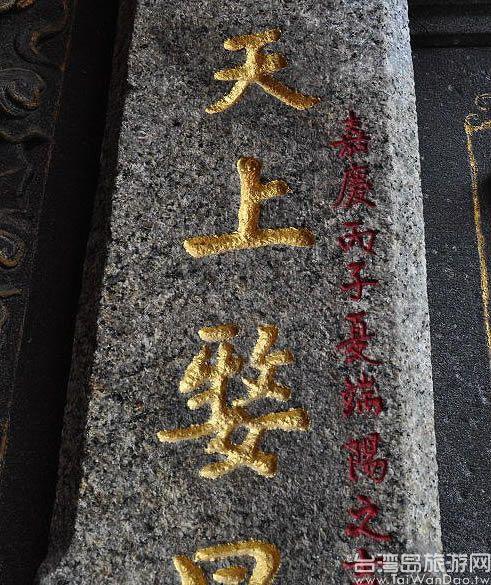 嘉慶丙子夏端陽之
天上婺
台湾岛旅游网
www.TaiWanDao.tw